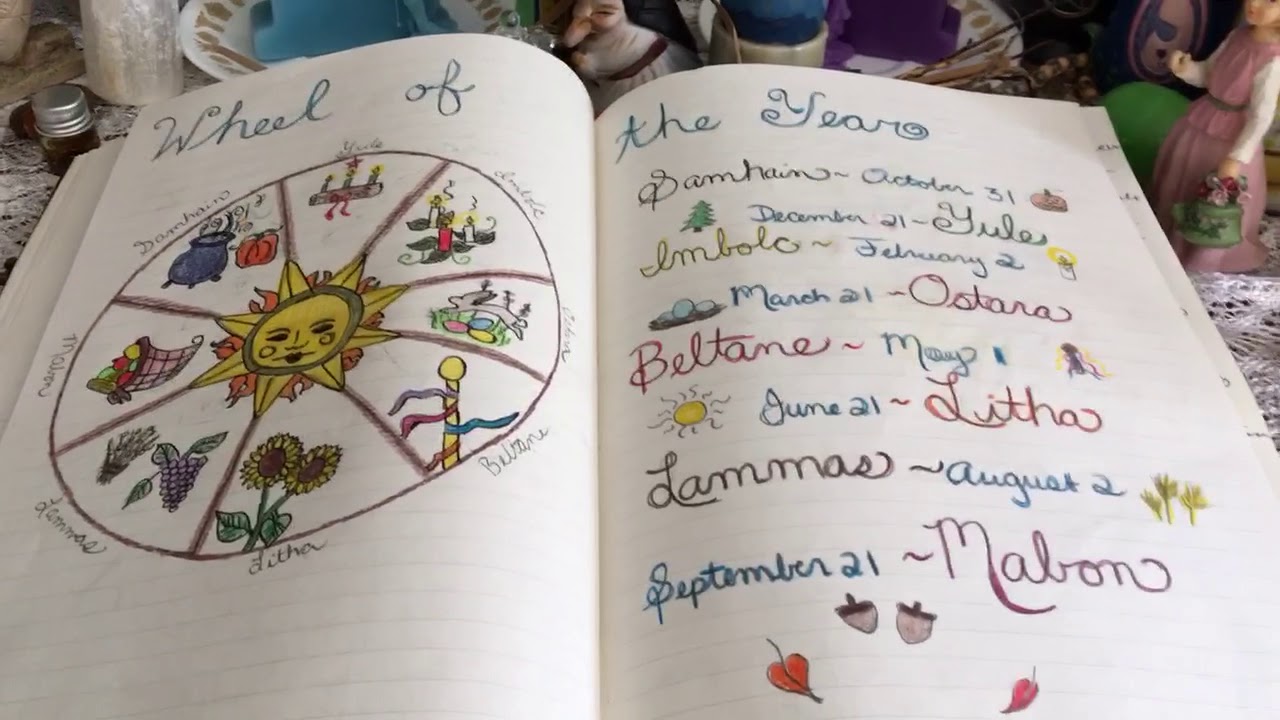 Wheel of
the Year
Yule
Imbolc
Samhain
Mabon
Beltane
Lammas
Litha
Samhain ~ October 31
December 21 ~ Yule
Imbolc ~ February 2
March 21 ~ Ostara
Beltane ~ May 1
June 21 ~ Litha
Lammas ~ August 2
September 21 ~ Mabon